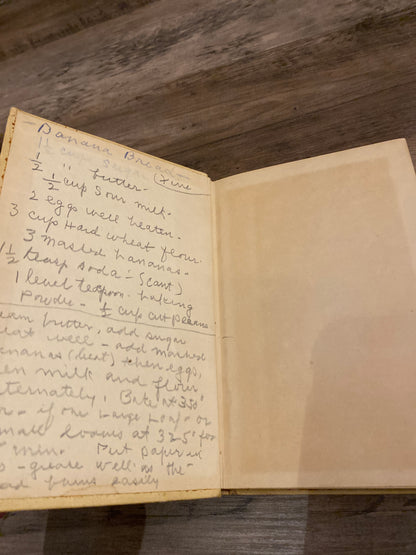 - Banana Bread -
1½ cup sugar (Fine
½ " butter -
½ cup sour milk.
2 eggs well beaten -
3 cup Hard wheat flour.
3 mashed bananas -
1½ teasp soda - (scant)
1 level teaspoon baking
Powder - ½ cup cut pecans
eam butter, add sugar
eat well - add mashed
nanas (beat) then eggs,
en milk and flour
lternately, Bake at 350°
or - if one Large Loaf - or
mall loaves at 325° for
min. Put paper in
s - grease well as the
ead burns easily